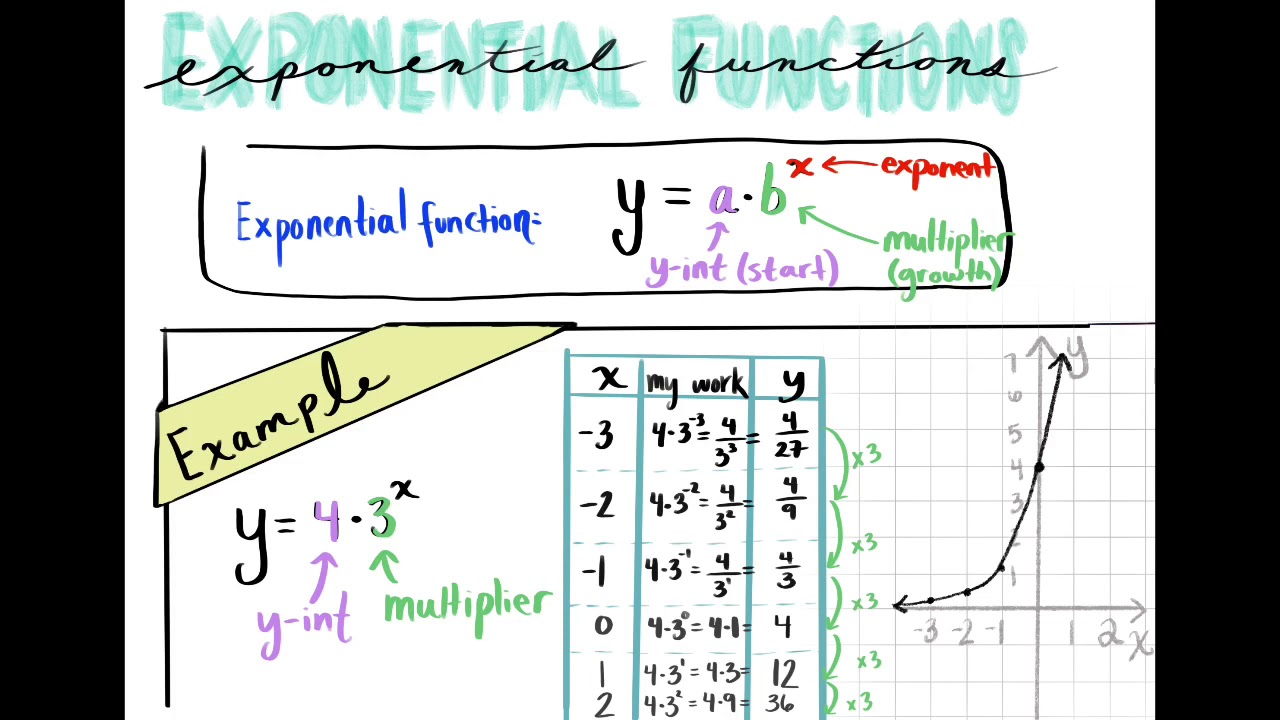 EXPONENTIAL FUNCTIONS
exponential functions
Exponential function: y = a · b^x ← exponent
y-int (start)
multiplier
(growth)
Example
y = 4 · 3^x
y-int
multiplier
x my work y
-3 4·3^-3 = 4/3^3 = 4/27
x3
-2 4·3^-2 = 4/3^2 = 4/9
x3
-1 4·3^-1 = 4/3^1 = 4/3
x3
0 4·3^0 = 4·1 = 4
x3
1 4·3^1 = 4·3 = 12
x3
2 4·3^2 = 4·9 = 36
y
7
6
5
4
3
2
1
-3 -2 -1 1 2 x